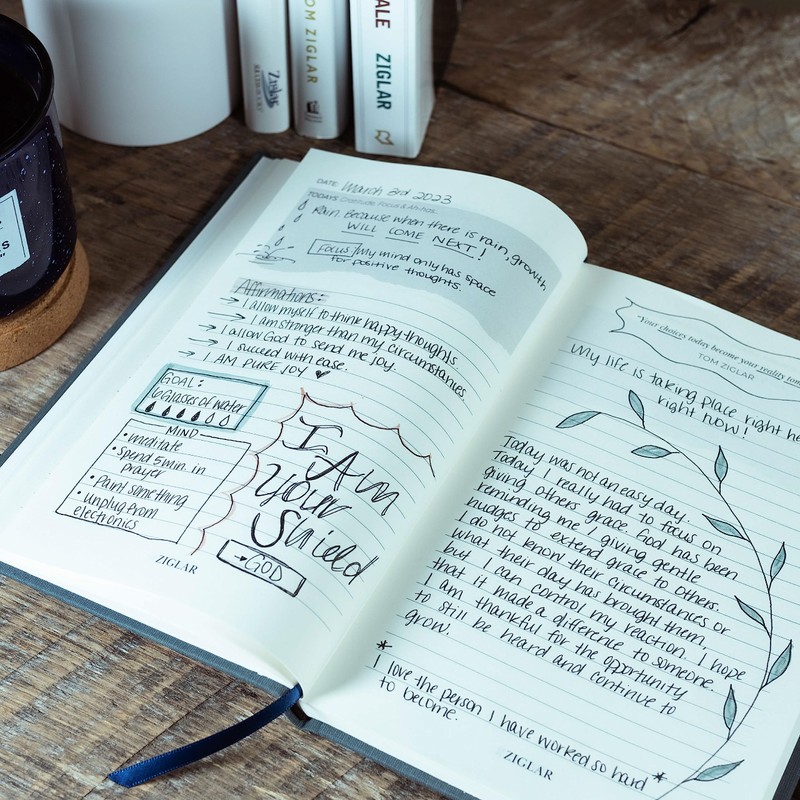 TOM ZIGLAR
ALE ZIGLAR
Ziglar
S
DATE: March 3rd 2023
TODAYS Gratitude, Focus & Ah-has...
Rain Because when there is rain, growth,
WILL COME NEXT!
Focus: My mind only has space
for positive thoughts.
Affirmations:
→ I allow myself to think happy thoughts
→ I am stronger than my circumstances.
→ I allow God to send me joy.
→ I succeed with ease.
→ I AM PURE JOY ♥
GOAL:
6 Glasses of water
MIND
• meditate
• Spend 5 min in
prayer
• Paint something
• unplug from
electronics
I Am
Your
Shield
→GOD
ZIGLAR
"Your choices today become your reality tom
TOM ZIGLAR
My life is taking place right he
right now!
Today was not an easy day.
Today I really had to focus on
giving others grace. God has been
reminding me / giving gentle
nudges to extend grace to others.
I do not know their circumstances or
what their day has brought them,
but I can control my reaction. I hope
that it made a difference to someone.
I am thankful for the opportunity
to still be heard and continue to
grow.
*
I love the person I have worked so hard *
to become.
ZIGLAR